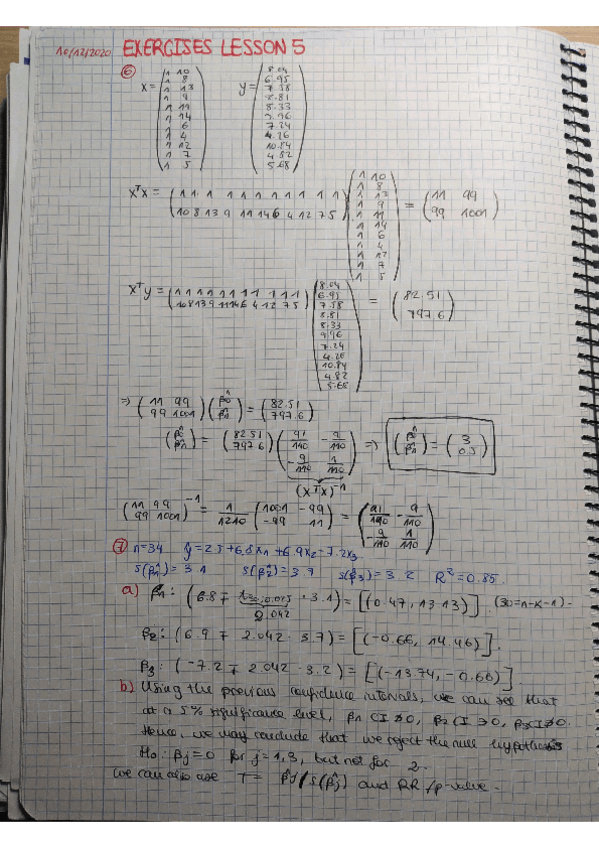 10/12/2020 EXERCISES LESSON 5
⑥ X = (1 10; 1 8; 1 13; 1 9; 1 11; 1 14; 1 6; 1 4; 1 12; 1 7; 1 5) y = (8.04; 6.95; 7.58; 8.81; 8.33; 9.96; 7.24; 4.26; 10.84; 4.82; 5.68)
XᵀX = (1 1 1 1 1 1 1 1 1 1 1; 10 8 13 9 11 14 6 4 12 7 5) (1 10; 1 8; 1 13; 1 9; 1 11; 1 14; 1 6; 1 4; 1 12; 1 7; 1 5) = (11 99; 99 1001)
Xᵀy = (1 1 1 1 1 1 1 1 1 1 1; 10 8 13 9 11 14 6 4 12 7 5) (8.04; 6.95; 7.58; 8.81; 8.33; 9.96; 7.24; 4.26; 10.84; 4.82; 5.68) = (82.51; 797.6)
⇒ (11 99; 99 1001) (β̂0; β̂1) = (82.51; 797.6)
(β̂0; β̂1) = (82.51; 797.6) (91/110 -9/110; -9/110 1/110) ⇒ (β̂0; β̂1) = (3; 0.5)
(XᵀX)⁻¹
(11 99; 99 1001)⁻¹ = 1/1210 (1001 -99; -99 11) = (91/110 -9/110; -9/110 1/110)
⑦ n=34 ŷ = 2.5+6.8x1+6.9x2-7.2x3
s(β̂1) = 3.1 s(β̂2) = 3.7 s(β̂3) = 3.2 R²=0.85.
a) β1: (6.8 ∓ t30;0.025 · 3.1) = [(0.47, 13.13)]. (30=n-k-1).
2.042
β2: (6.9 ∓ 2.042 · 3.7) = [(-0.66, 14.46)].
β3: (-7.2 ∓ 2.042 · 3.2) = [(-13.74, -0.66)].
b) Using the previous confidence intervals, we can see that
at a 5% significance level, β1 CI ∌ 0, β2 CI ∋ 0, β3 CI ∌ 0.
Hence, we may conclude that we reject the null hypothesis
H0: βj = 0 for j = 1,3, but not for 2.
we can also use T = β̂j / s(β̂j) and RR / p-value.